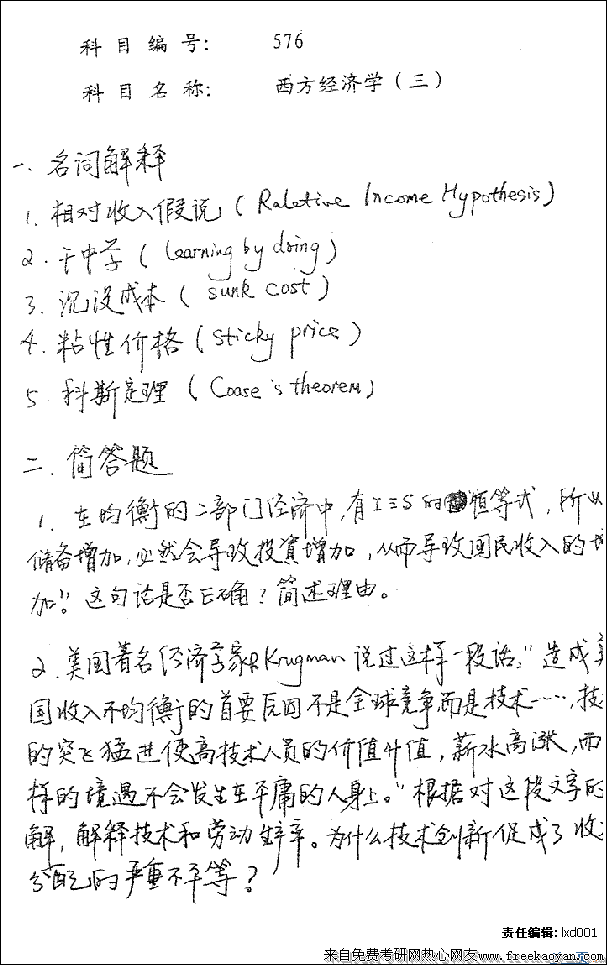 科目编号: 576
科目名称: 西方经济学(三)
一、名词解释
1. 相对收入假说 (Ralative Income Hypothesis)
2. 干中学 (learning by doing)
3. 沉没成本 (sunk cost)
4. 粘性价格 (sticky price)
5. 科斯定理 (Coase's theorem)
二. 简答题
1. 在均衡的二部门经济中,有I≡S的恒等式,所以
储备增加,必然会导致投资增加,从而导致国民收入的增
加"。这句论是否正确?简述理由。
2. 美国著名经济学家P.Krugman说过这样一段话,"造成美
国收入不均衡的首要原因不是全球竞争而是技术……,技
的突飞猛进使高技术人员的价值升值,薪水高涨,而
样的境遇不会发生在平庸的人身上。"根据对这段文字的
解,解释技术和劳动生产率。为什么技术创新促成了收
分配的严重不平等?
责任编辑: lxd001
来自免费考研网热心网友www.freekaoyan.com